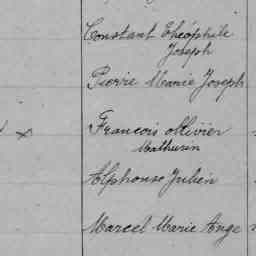 Constant Théophile
Joseph
Pierre Marie Joseph
x François Ollivier
Mathurin
Alphonse Julien
Marcel Marie Ange